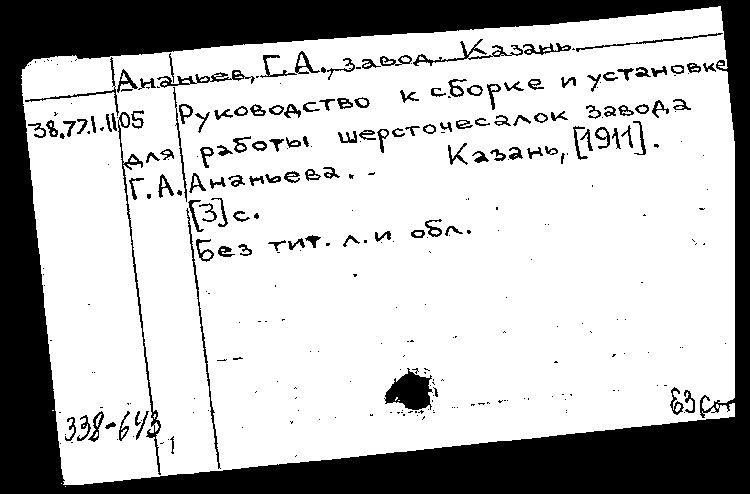 Ананьев, Г.А., завод. Казань.
38.77.1.1105 Руководство к сборке и установке
для работы шерсточесалок завода
Г.А. Ананьева. - Казань, [1911].
[3] с.
Без тит. л. и обл.
338-643
1